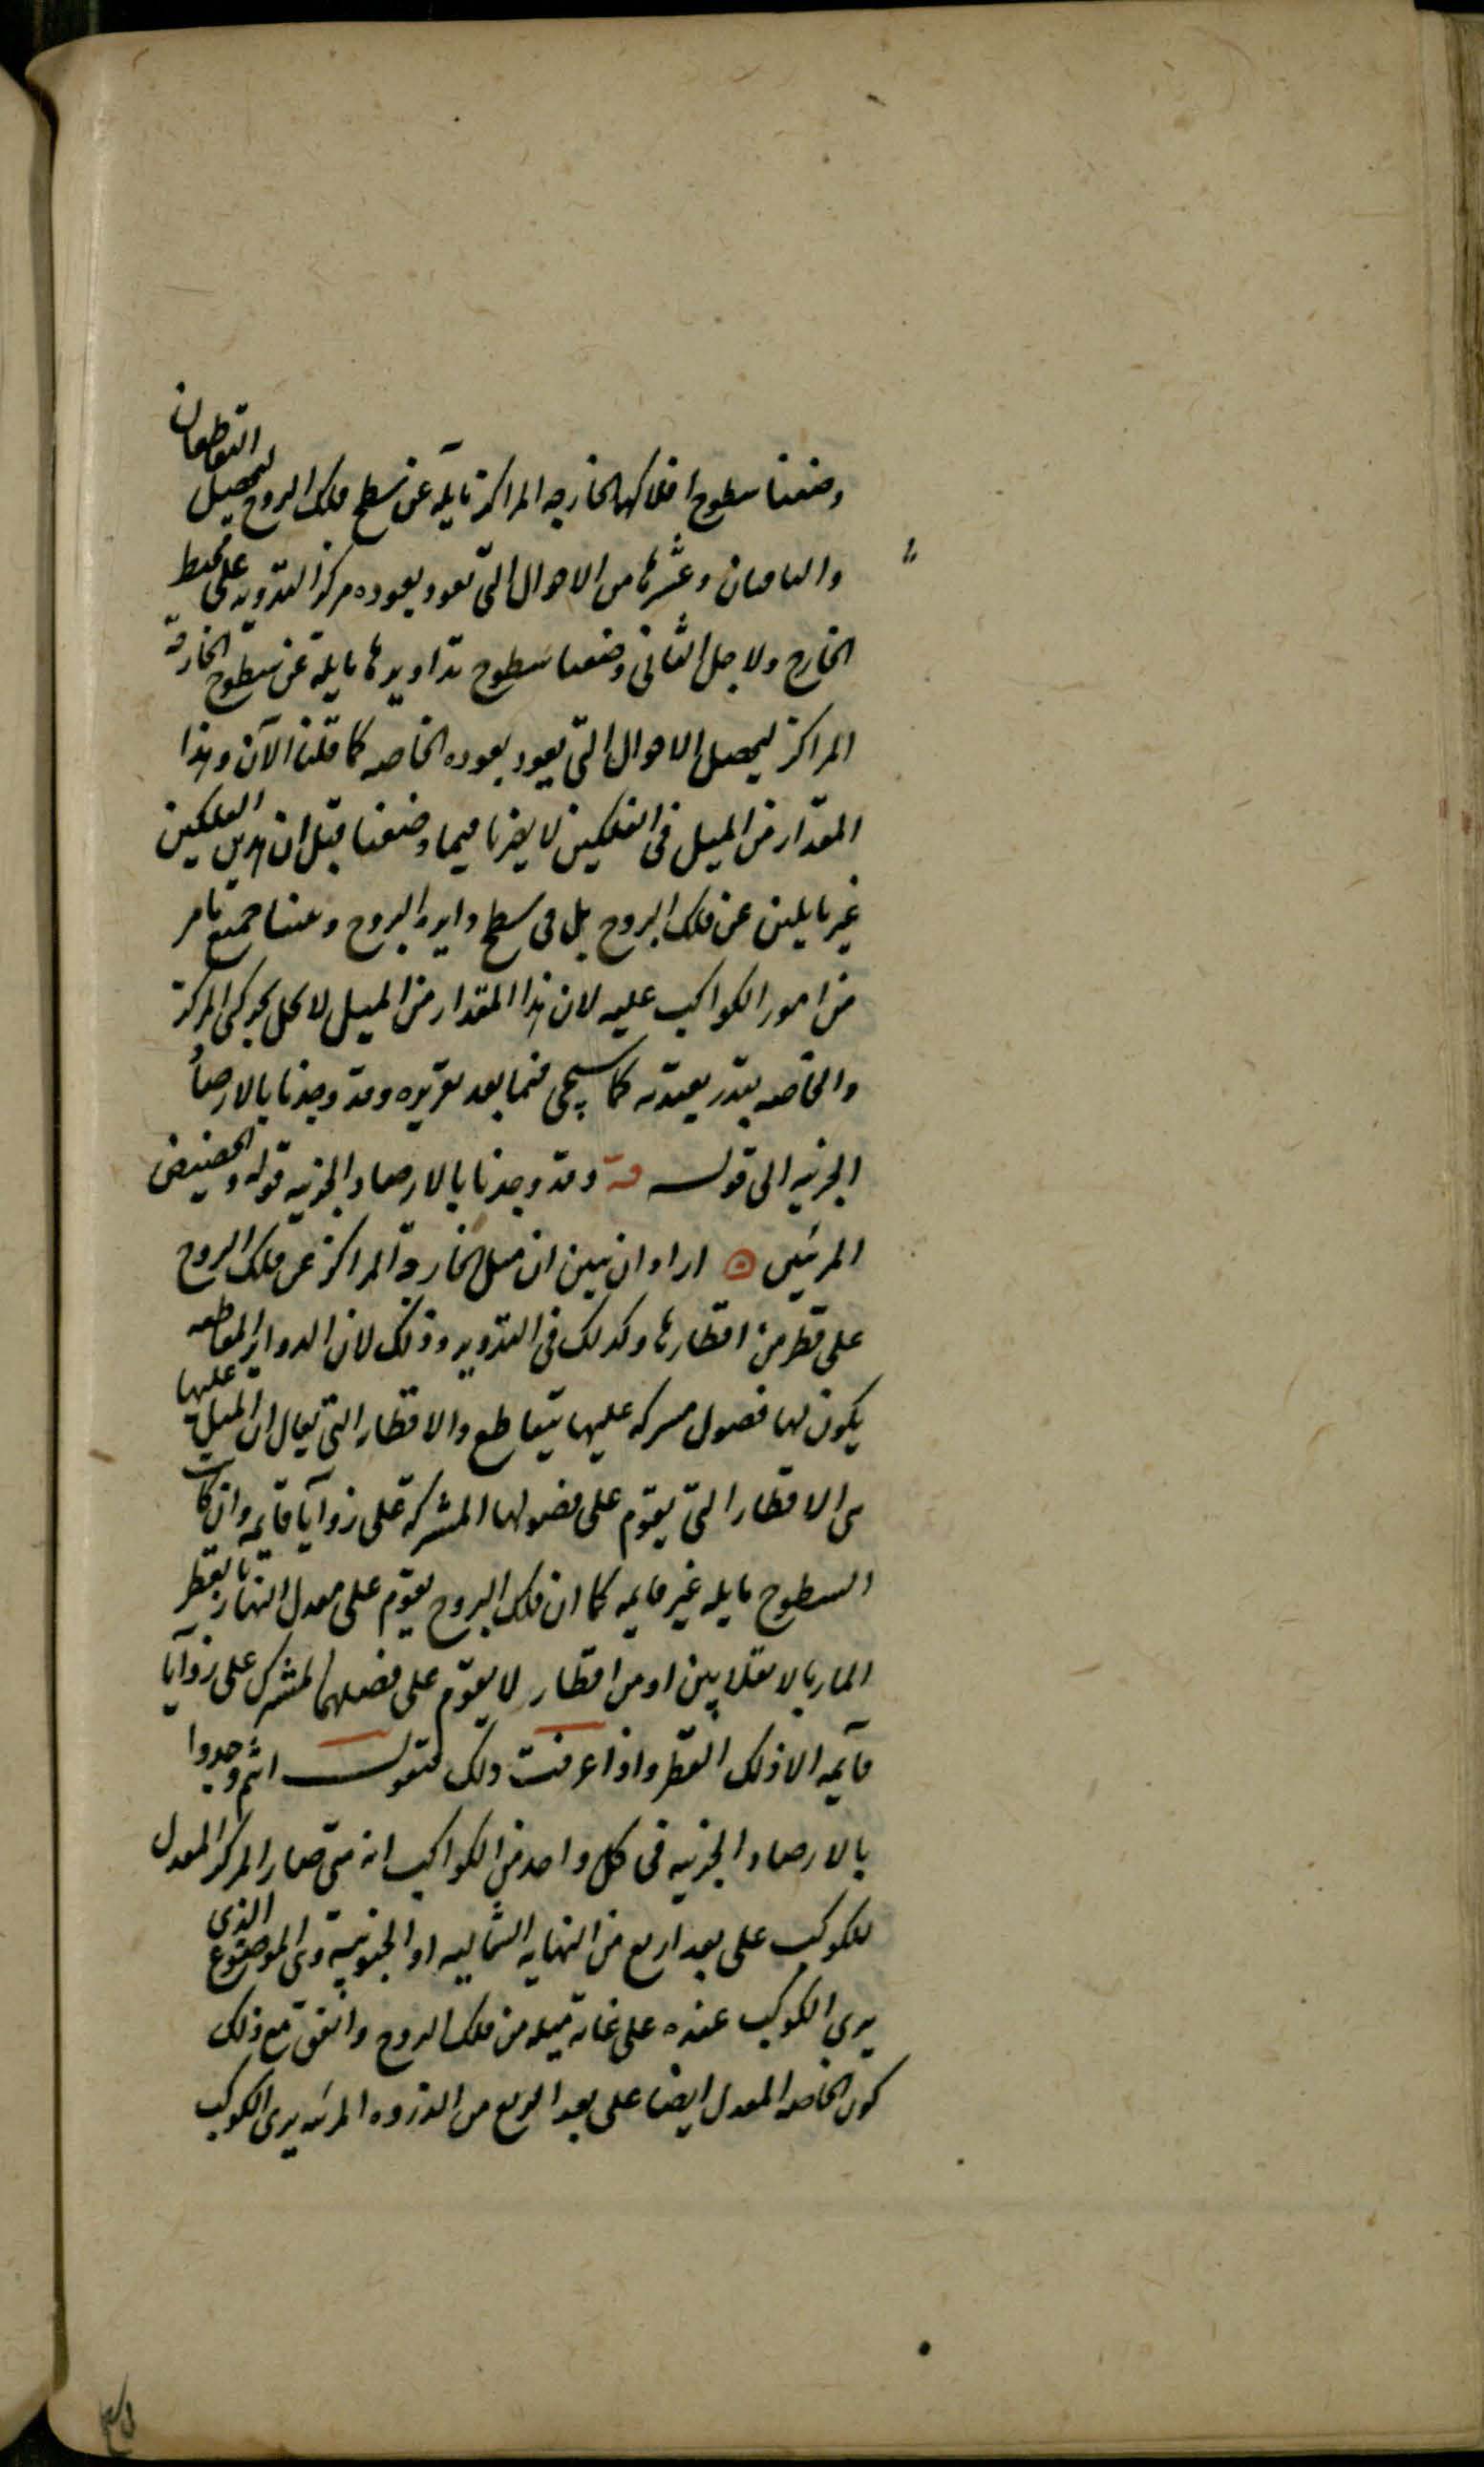 وضعنا سطوح افلاكها الخارجه المراكز مايله عن سطح فلك البروج ليحصل التقاطعان
والنهايتان وغيرها من الاحوال التى تعود بعوده مركز التدوير على محيط
الخارج ولاجل الثانى وضعنا سطوح تداويرها مايلة عن سطوح الخارجة
المراكز ليحصل الاحوال التى يعود بعوده الخاصه كما قلنا الآن وهذا
المقدار من الميل فى الفلكين لا يضرنا فيما وضعنا قبل ان هذين الفلكين
غير مايلين عن فلك البروج بل فى سطح دايره البروج وبينا جميع ما مر
من امور الكواكب عليه لان هذا المقدار من الميل لا يخل بحركتى المركز
والخاصه بقدر يعتد به كما سيجى فيما بعد تقريره وقد وجدنا بالارصاد
الجزئيه الى قوله وقد وجدنا بالارصاد الجزئيه قوله والحضيض
المرئيين اراد ان يبين ان ميل الخارجة المراكز عن فلك البروج
على قطر من اقطارها وكذلك فى التدوير وذلك لان الدواير المتقاطعه
يكون لها فصول مشتركه عليها يتقاطع والاقطار التى يقال ان الميل عليها
هى الاقطار التى يقوم على فصولها المشتركة على زوايا قايمه وان كانت
السطوح مايله غير قايمه كما ان فلك البروج يقوم على معدل النهار بالقطر
المار بالانقلابين او من اقطاره لا يقوم على فصلهما المشترك على زوايا
قآئمه الا ذلك القطر واذا عرفت ذلك فنقول انهم وجدوا
بالارصاد الجزئيه فى كل واحد من الكواكب انه متى صار المركز المعدل
للكوكب على بعد اربع من النهايه الشماليه او الجنوبية وهى الموضع الذى
يرى الكوكب عنده على غاية ميله من فلك البروج واتفق مع ذلك
كون الخاصه المعدله ايضا على بعد الربع من الذروه المرئيه يرى الكوكب